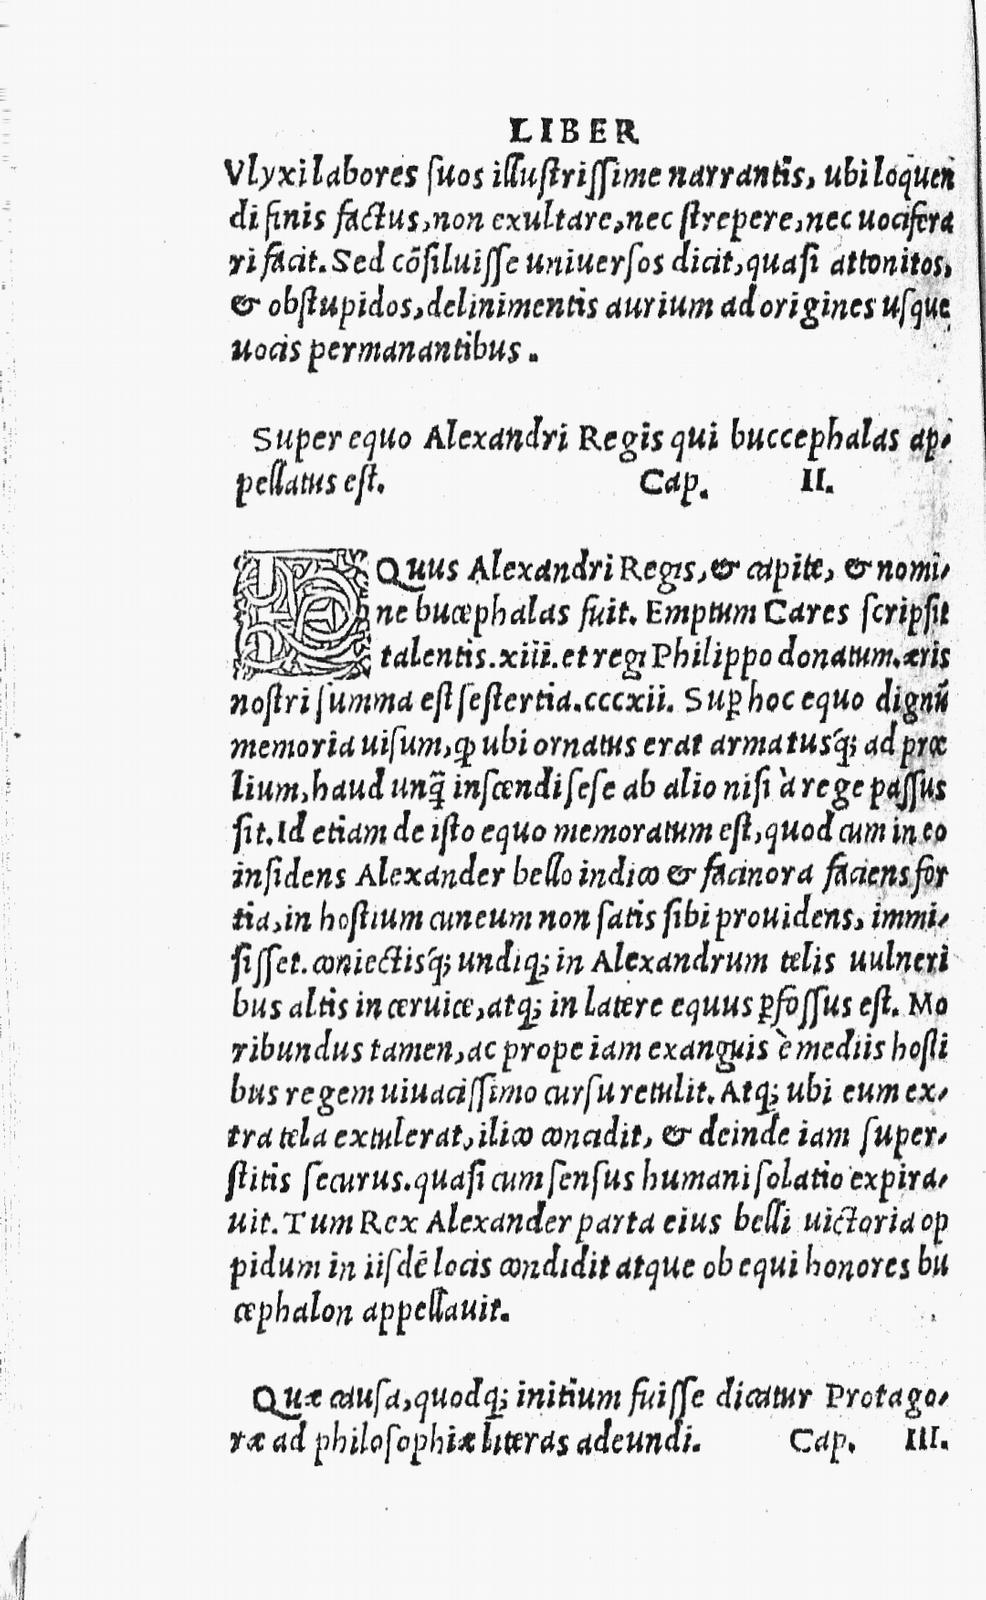 LIBER
Vlyxi labores suos illustrissime narrantis, ubi loquen
di finis factus, non exultare, nec strepere, nec uocifera
ri facit. Sed cõsiluisse uniuersos dicit, quasi attonitos,
& obstupidos, delinimentis aurium ad origines usque
uocis permanantibus.
Super equo Alexandri Regis qui buccephalas ap-
pellatus est. Cap. II.
EQuus Alexandri Regis, & capite, & nomi-
ne bucephalas fuit. Emptum Cares scripsit
talentis.xiii. et regi Philippo donatum. æris
nostri summa est sestertia.cccxii. Suꝑ hoc equo dignũ
memoria uisum, ꝙ ubi ornatus erat armatusq́; ad prœ
lium, haud unq̃ inscendi sese ab alio nisi à rege passus
sit. Id etiam de isto equo memoratum est, quod cum in eo
insidens Alexander bello indico & facinora faciens for
tia, in hostium cuneum non satis sibi prouidens, immi-
sisset. coniectisq́; undiq; in Alexandrum telis uulneri
bus altis in ceruice, atq; in latere equus ꝑfossus est. Mo
ribundus tamen, ac prope iam exanguis è mediis hosti
bus regem uiuacissimo cursu retulit. Atq; ubi eum ex-
tra tela extulerat, ilico concidit, & deinde iam super-
stitis securus. quasi cum sensus humani solatio expira-
uit. Tum Rex Alexander parta eius belli uictoria op
pidum in iisdẽ locis condidit atque ob equi honores bu
cephalon appellauit.
Quæ causa, quodq; initium fuisse dicatur Protago-
ræ ad philosophiæ literas adeundi. Cap. III.